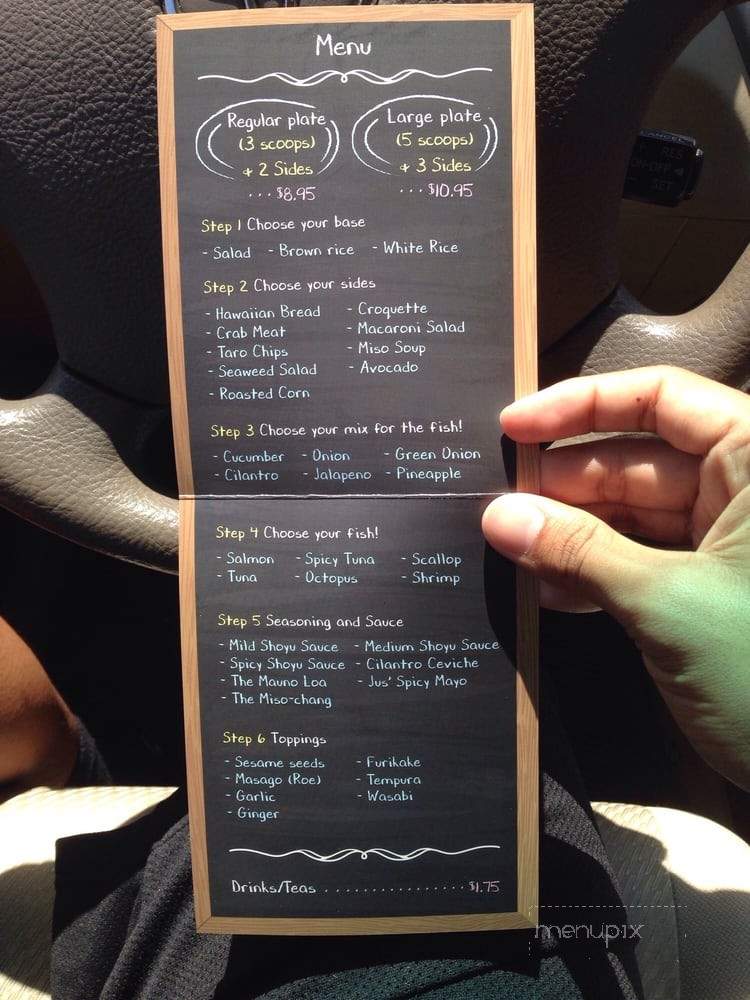 Menu
Regular plate
(3 scoops)
+ 2 Sides
... $8.95
Large plate
(5 scoops)
+ 3 Sides
... $10.95
Step 1 Choose your base
- Salad - Brown rice - White Rice
Step 2 Choose your sides
- Hawaiian Bread - Croquette
- Crab Meat - Macaroni Salad
- Taro Chips - Miso Soup
- Seaweed Salad - Avocado
- Roasted Corn
Step 3 Choose your mix for the fish!
- Cucumber - Onion - Green Onion
- Cilantro - Jalapeno - Pineapple
Step 4 Choose your fish!
- Salmon - Spicy Tuna - Scallop
- Tuna - Octopus - Shrimp
Step 5 Seasoning and Sauce
- Mild Shoyu Sauce - Medium Shoyu Sauce
- Spicy Shoyu Sauce - Cilantro Ceviche
- The Mauno Loa - Jus' Spicy Mayo
- The Miso-chang
Step 6 Toppings
- Sesame seeds - Furikake
- Masago (Roe) - Tempura
- Garlic - Wasabi
- Ginger
Drinks/Teas ................. $1.75
CANCEL
RES
ON-OFF
SET
menupix